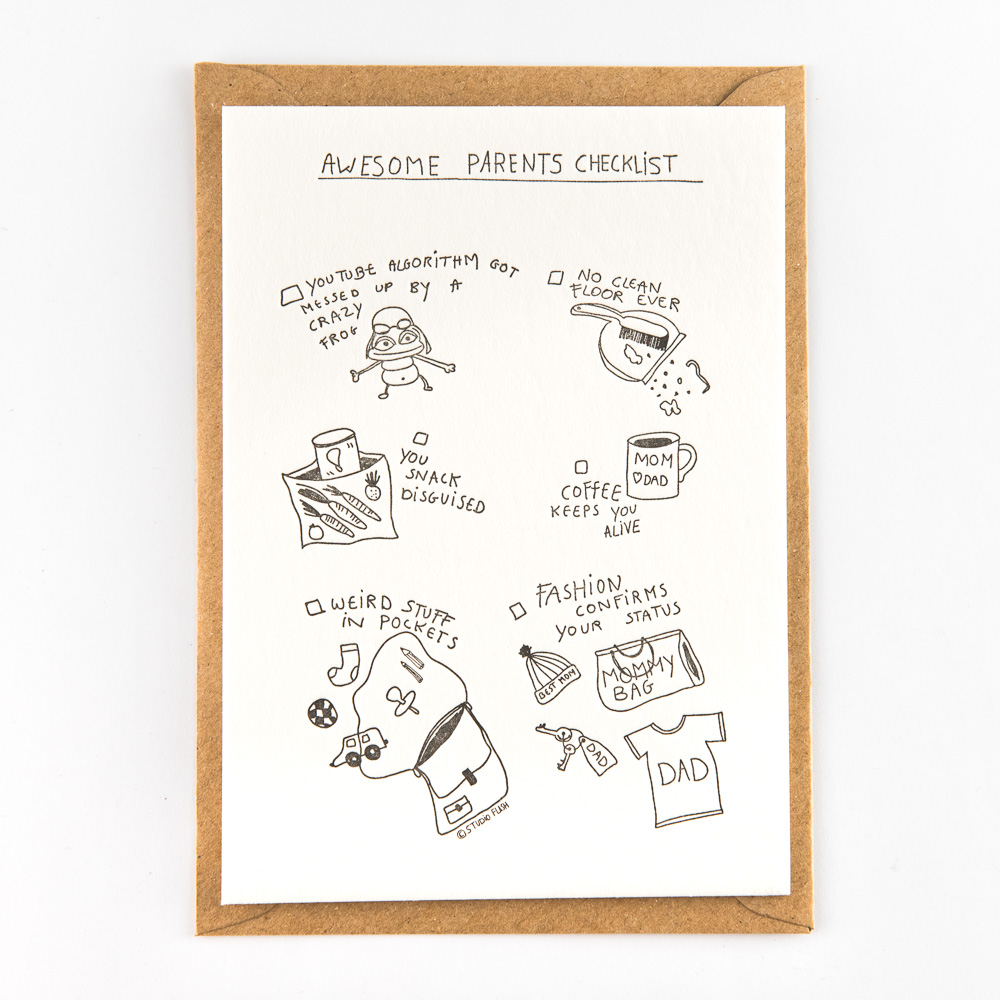 AWESOME PARENTS CHECKLIST
YOUTUBE ALGORITHM GOT
MESSED UP BY A
CRAZY
FROG
NO CLEAN
FLOOR EVER
YOU
SNACK
DISGUISED
MOM
♡DAD
COFFEE
KEEPS YOU
ALIVE
WEIRD STUFF
IN POCKETS
FASHION
CONFIRMS
YOUR STATUS
BEST MOM
MOMMY
BAG
DAD
DAD
©STUDIO FLASH